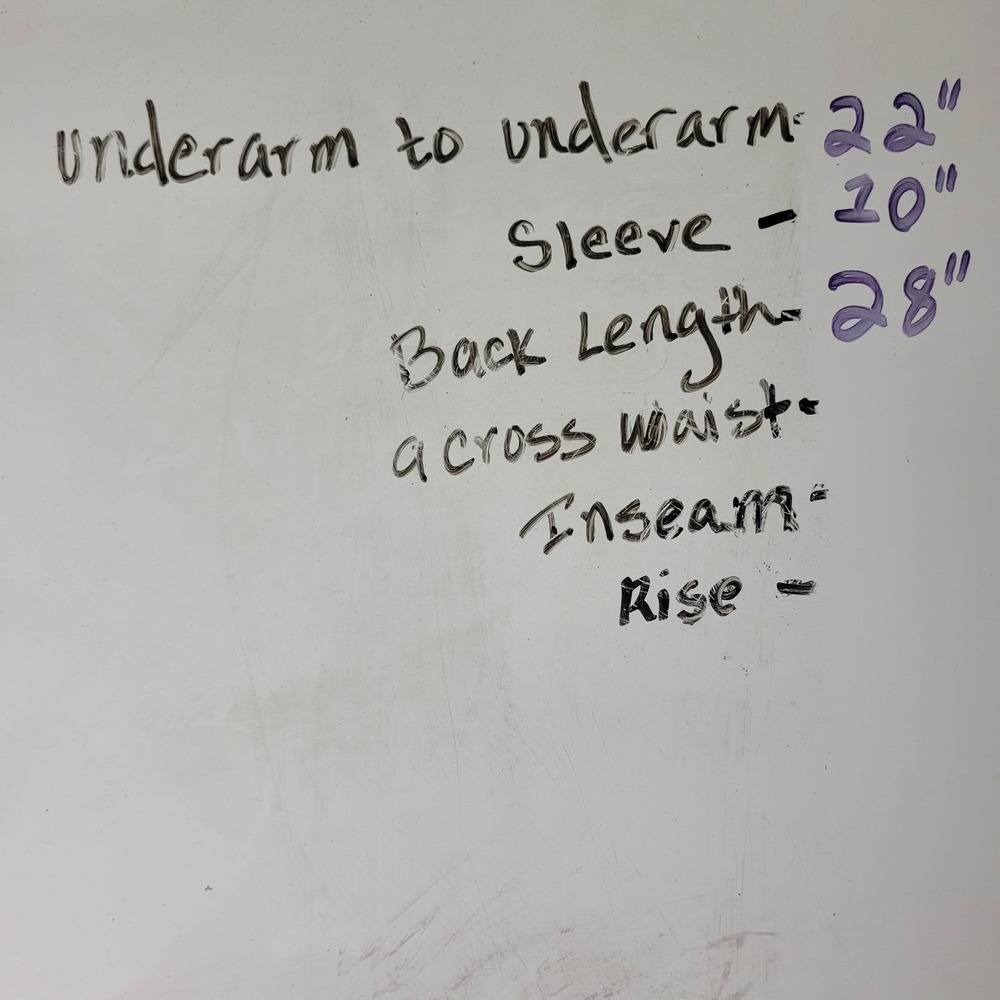 underarm to underarm- 22"
Sleeve - 10"
Back Length- 28"
across waist-
Inseam-
Rise -